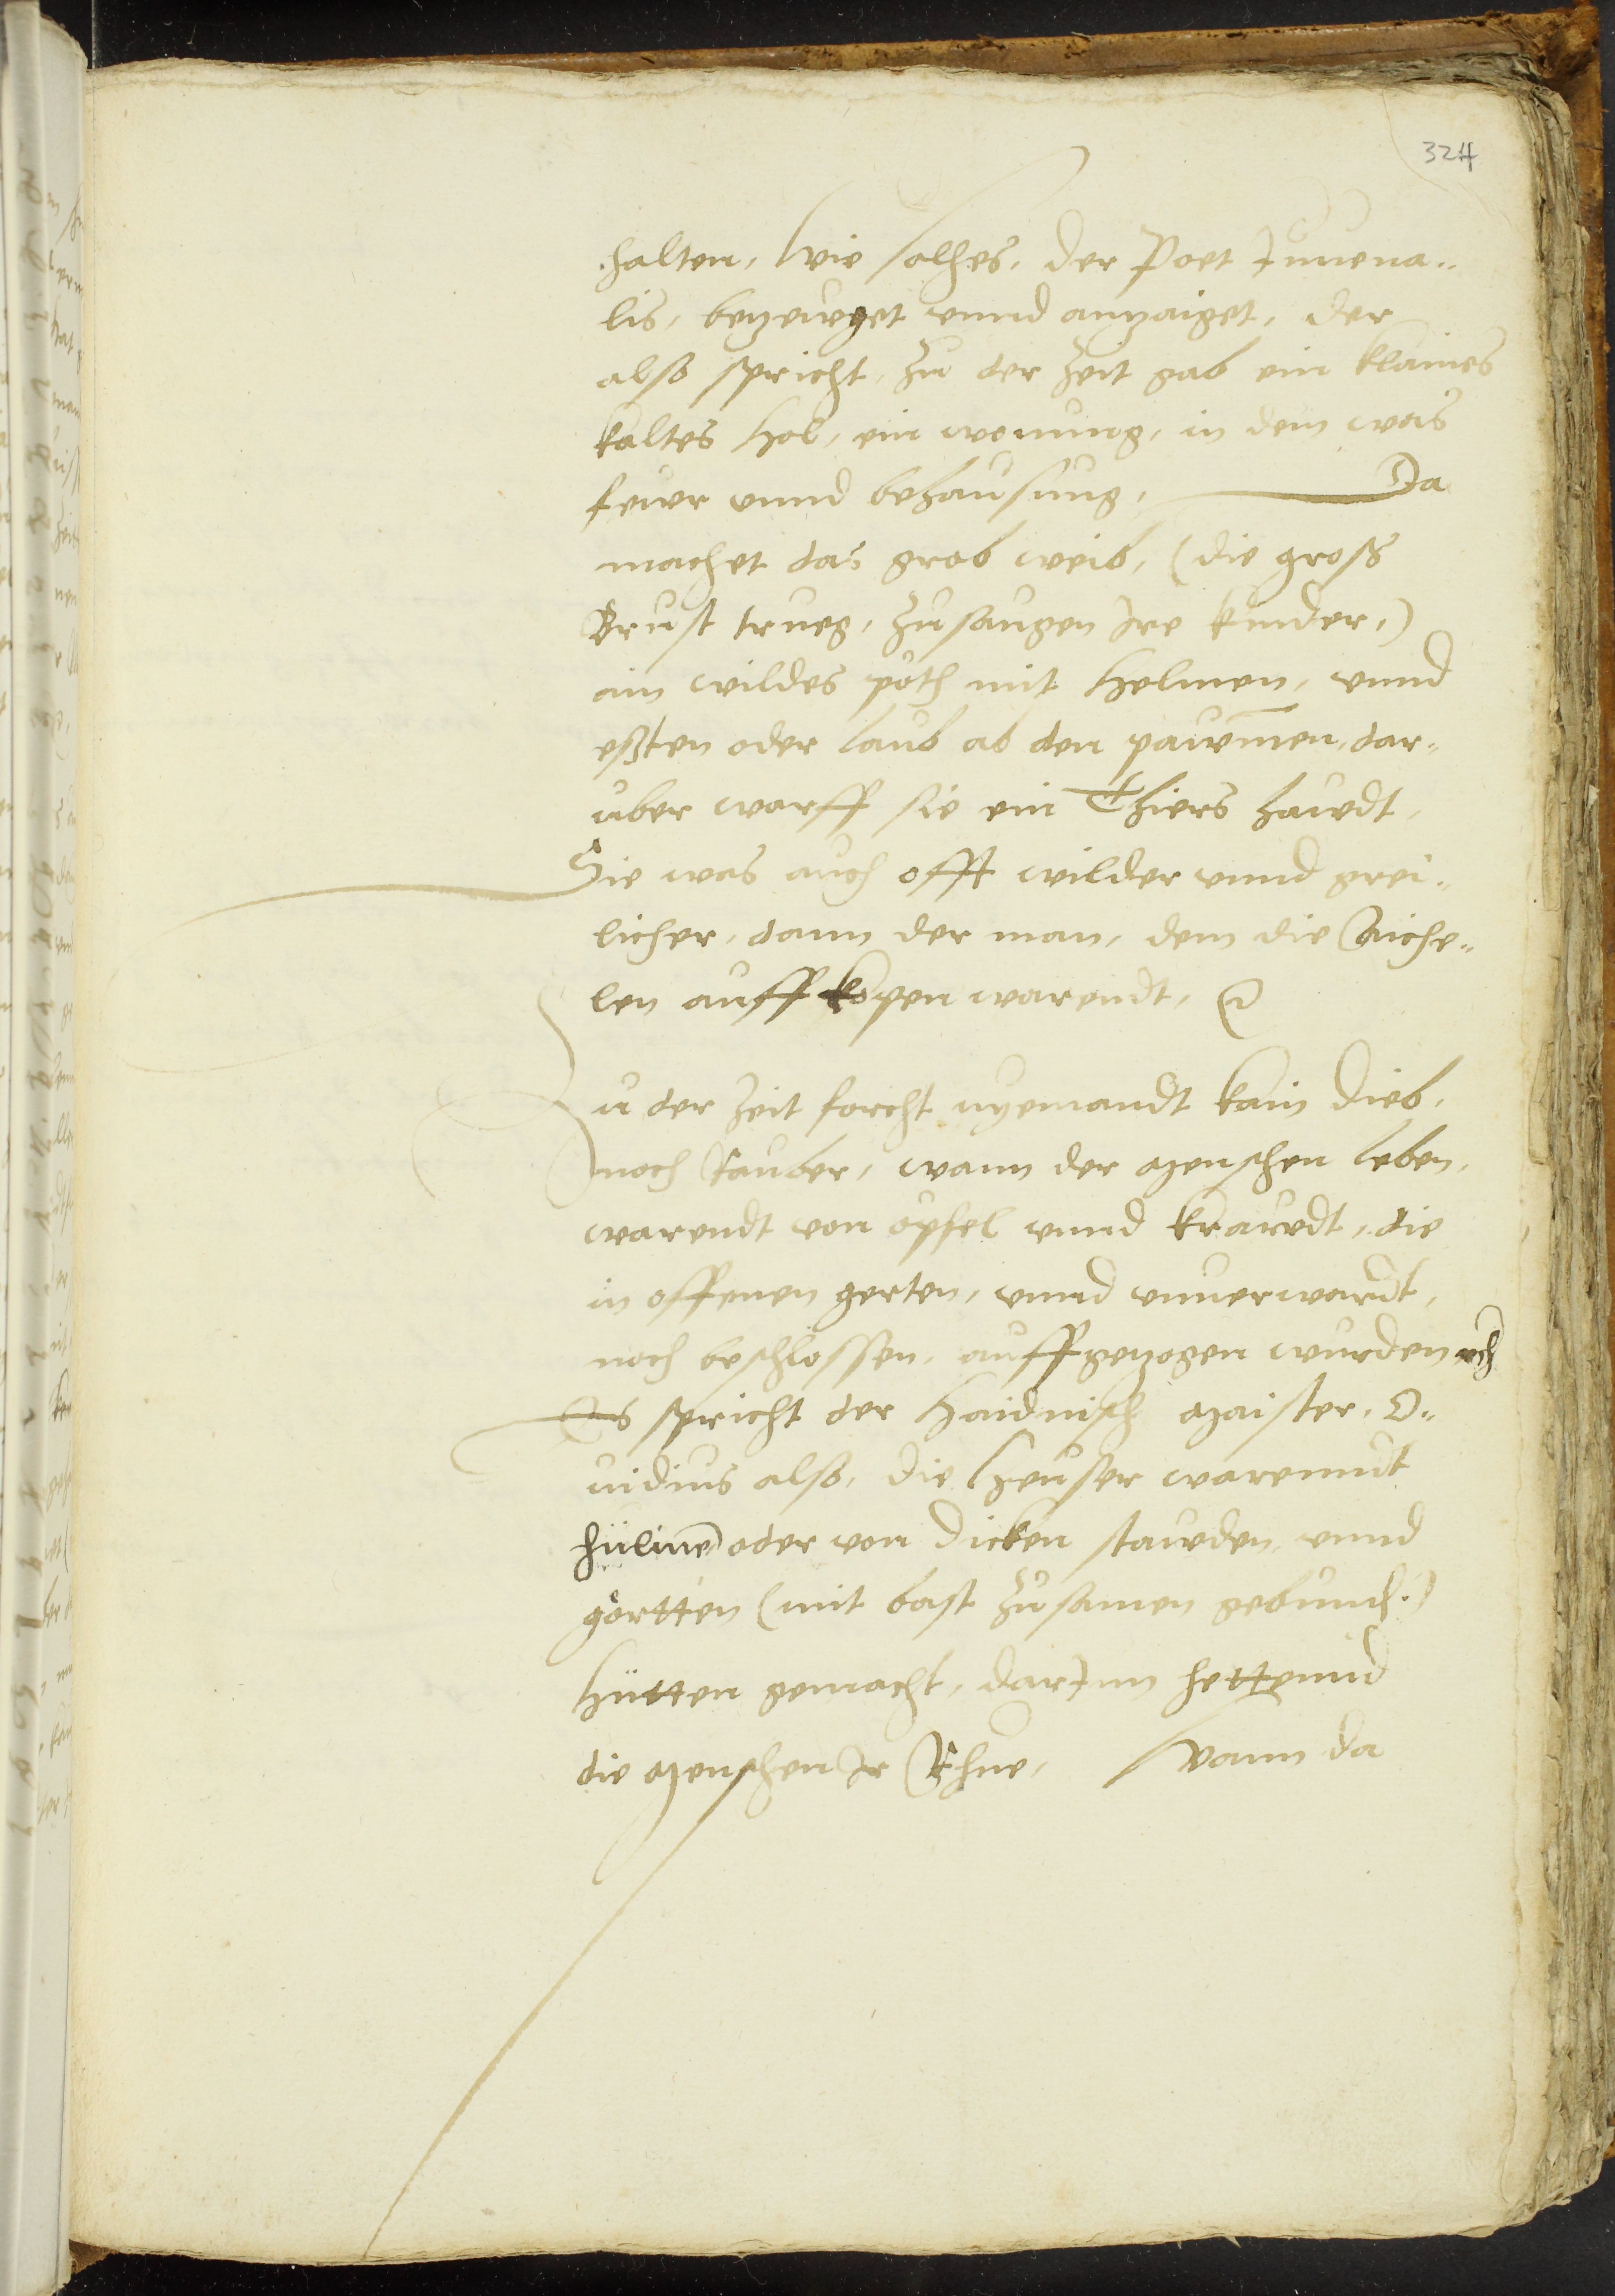 324
halten, Wie solhes, der Poet Juuena„
lis, bezeuget vnnd anzaiget, der
also spricht, zu der Zeit gab ein klaines
kaltes Hol, ein wonung, in dem was
feuer vnnd behausung, Da
machet das grob weib, (die gross
Brust trueg, zu saugen Jre kinder,)
ain wildes pöth mit Helmen, vnnd
essten oder laub ab den pawmen, dar„
uber warff sie ein Thiers hawdt,
Sie was auch offt wilder vnnd grei„
licher, dann der man, dem die Aiche„
len auff kopen warendt,
Zu der Zeit forcht nyemandt kain Dieb,
noch Rauber, wann der Menschen leben,
warendt von öpfel vnnd krawdt, die
in offenen gerten, vnnd vnuerwardt,
noch beschlossen, auffgezogen wurden ach
Es spricht der Haidnisch Maister, O„
uidius also, die Heuser warenndt
hülinen oder von dicken stawden, vnnd
görtten (mit bast zusamen gebund.)
Hütten gemacht, darJnn hettennd
die Menschen Jr Rhue, Wann da